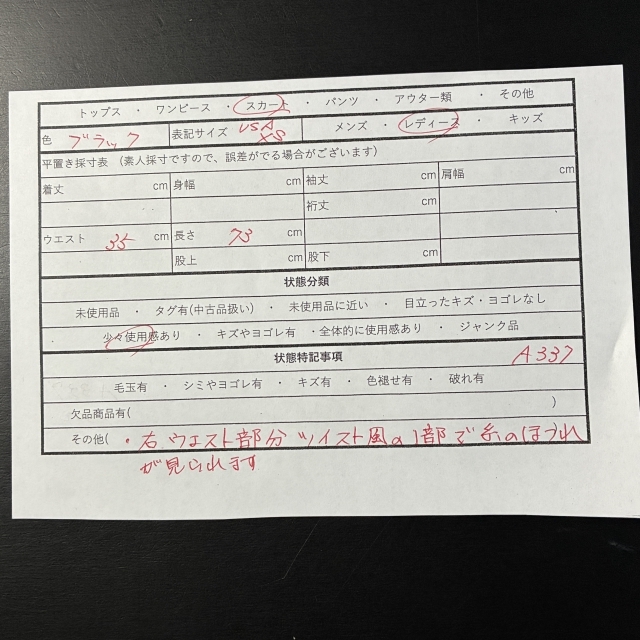 トップス ・ ワンピース ・ スカート ・ パンツ ・ アウター類 ・ その他
色 ブラック 表記サイズ USA XS メンズ ・ レディース ・ キッズ
平置き採寸表 (素人採寸ですので、誤差がでる場合がございます)
着丈 cm 身幅 cm 袖丈 cm 肩幅 cm
裄丈 cm
ウエスト 35 cm 長さ 73 cm
股上 cm 股下 cm
状態分類
未使用品 ・ タグ有(中古品扱い) ・ 未使用品に近い ・ 目立ったキズ・ヨゴレなし
少々使用感あり ・ キズやヨゴレ有 ・全体的に使用感あり ・ ジャンク品
状態特記事項 A337
毛玉有 ・ シミやヨゴレ有 ・ キズ有 ・ 色褪せ有 ・ 破れ有
欠品商品有( )
その他( ・右ウエスト部分ツイスト風の1部で糸のほつれ
が見られます